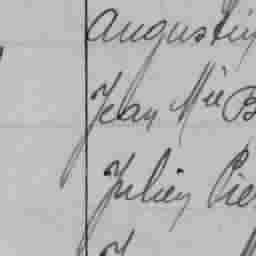 Augustin
Jean Mie B
Julien Pie